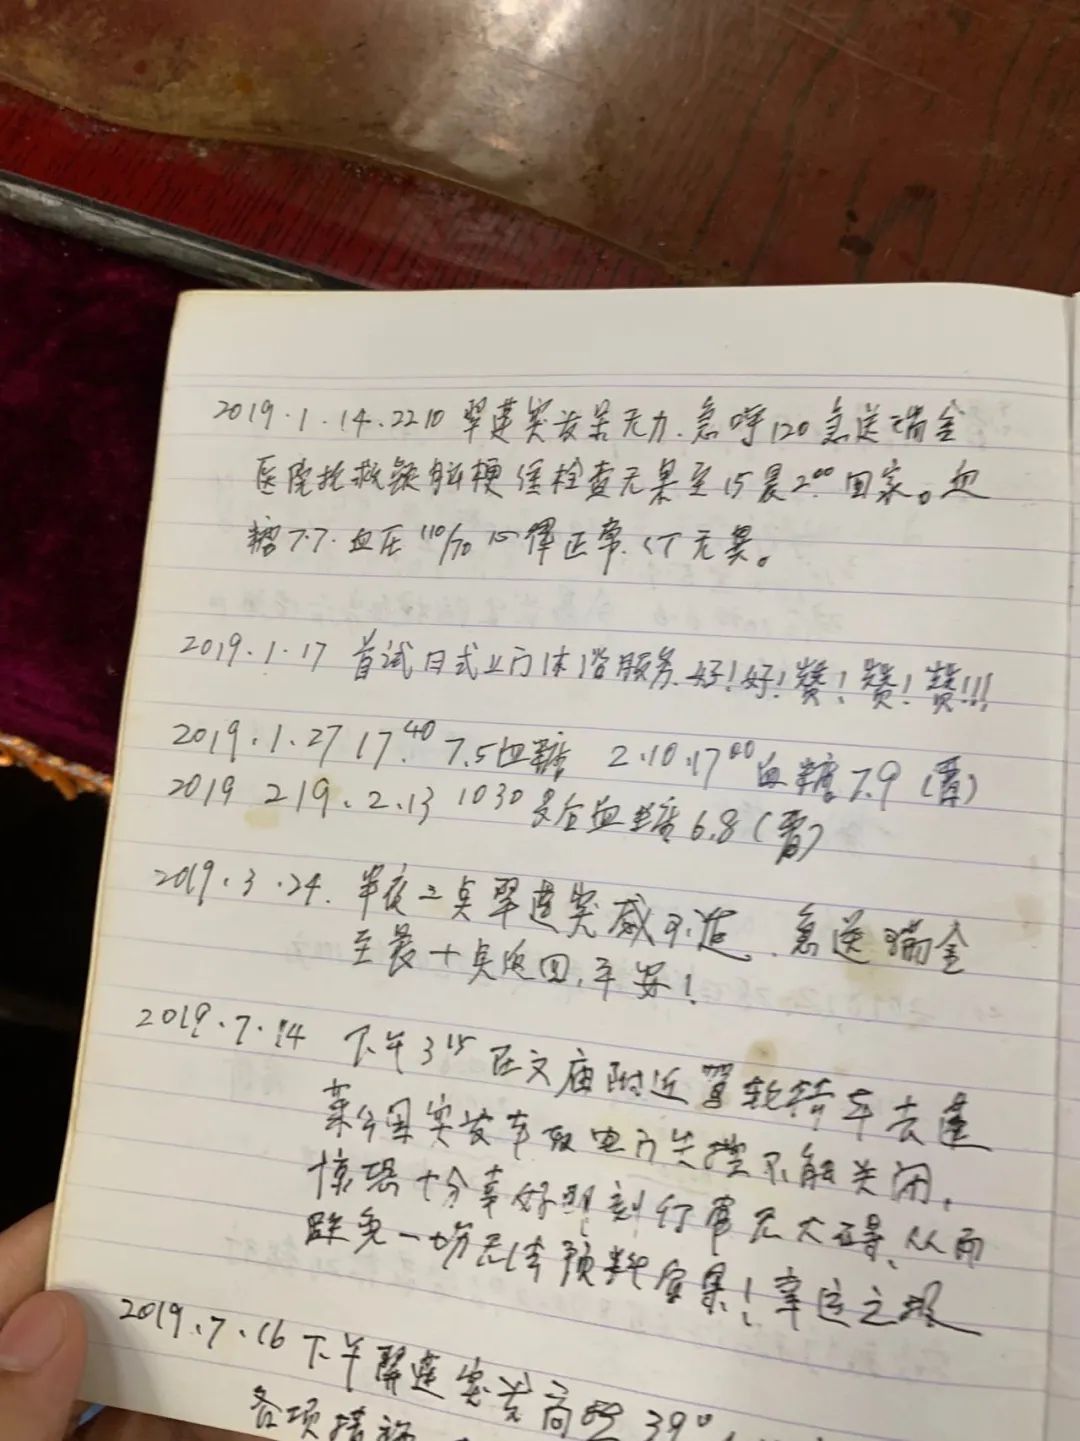 2019.1.14.2210 翠莲突发呆无力.急呼120急送瑞金
医院抢救疑脑梗经检查无果至15晨2⁰⁰回家。血
糖7.7.血压110/70 心律正常.CT无异。
2019.1.17 首试日式上门沐浴服务.好!好!赞!赞!赞!!!
2019.1.27 17.⁴⁰ 7.5血糖 2.10.17⁰⁰血糖7.9(胃)
2019 219.2.13 1030 空血糖6.8(胃)
2019.3.24. 半夜二点翠莲突感不适.急送瑞金
至晨十点返回.平安!
2019.7.14 下午3¹⁵在文庙附近驾轮椅车去蓬
莱公园突发车 电门失控不能关闭.
惊恐十分幸好即刻行 无大碍.从而
避免一场无法预料后果!幸运之极
2019.7.16 下午翠莲突发高烧39°.
各项措施